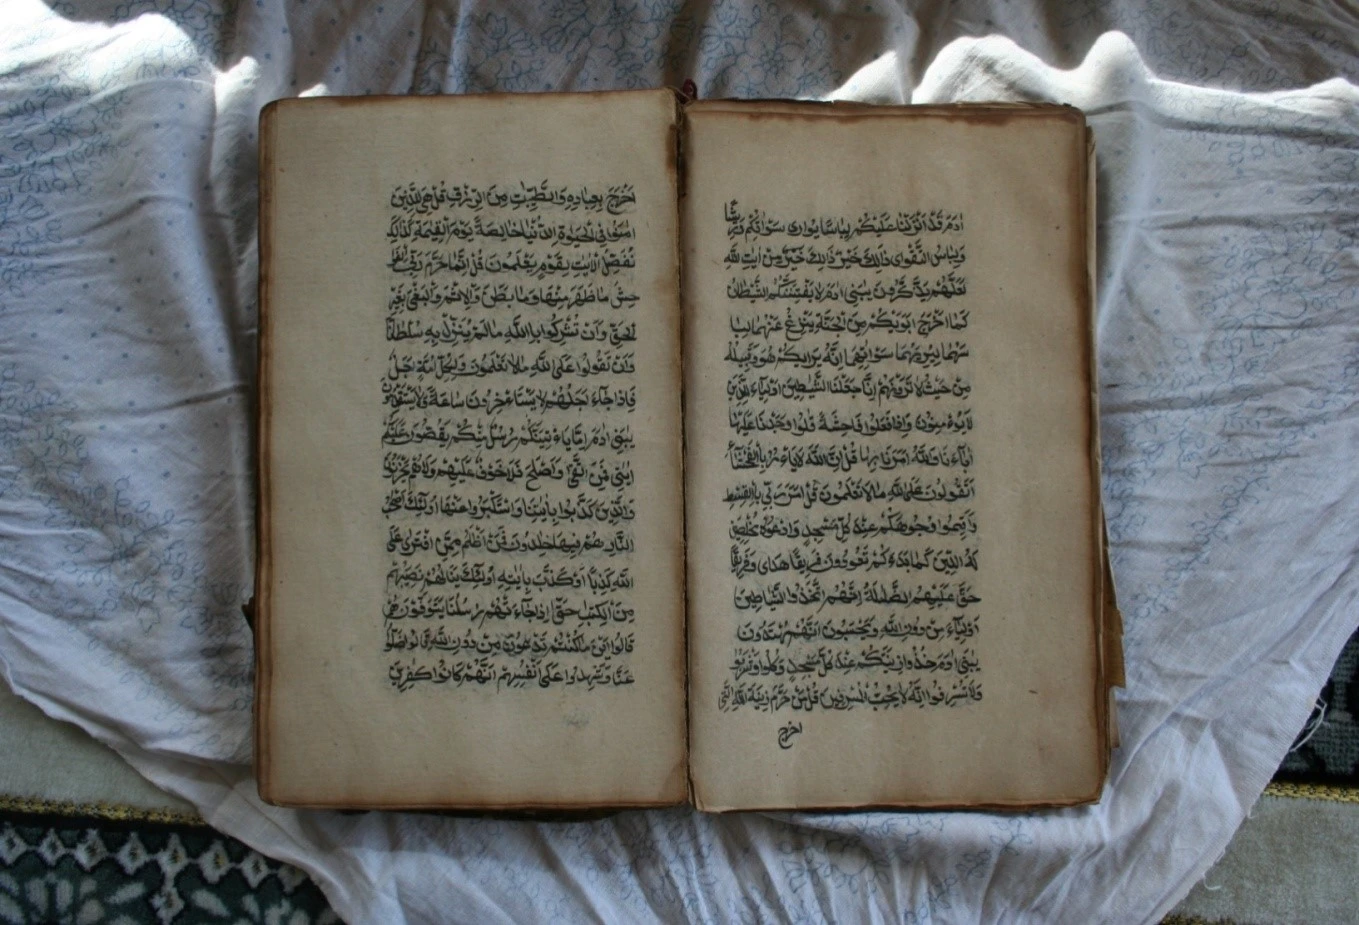 ادم قد انزلنا عليكم لباسا يواري سواتكم وريشا
ولباس التقواى ذالك خير ذالك خير من ايت الله
لعلهم يذكرون يبني ادم لا يفتننكم الشيطان
كما اخرج ابويكم من الجنة ينزع عنهما لبا
سهما ليريهما سواتهما انه يرايكم هو وقبيله
من حيث لا ترونهم انا جعلنا الشيطين اولياء للذين
لا يؤمنون واذا فعلوا فاحشة قالوا وجدنا عليها
اباءنا والله امرنا بها قل ان الله لا ياءمر بالفحشاء
اتقولون على الله مالا تعلمون قل امر ربي بالقسط
واقيموا وجوهكم عند كل مسجد وادعوه مخلصين
له الدين كما بدءكم تعودون فريقا هداى وفريقا
حق عليهم الضللة انهم اتخذوا الشياطين
اولياء من دون الله ويحسبون انهم مهتدون
يبنى ادم خذوا زينتكم عند كل مسجد وكلوا واشربوا
ولا تسرفوا انه لا يحب المسرفين قل من حرم زينة الله التي
اخرج
اخرج لعباده والطيبت من الرزق قل هي للذين
امنوا في الحيوة الدنيا خالصة يوم القيمة كذالك
نفصل الايت لقوم يعلمون قل انما حرم ربي الفوا
حش ما ظهر منها وما بطن والاثم والبغي بغير
الحق وان تشركوا بالله مالم ينزل به سلطانا
وان تقولوا على الله مالا تعلمون ولكل امة اجل
فاذا جاء اجلهم لا يستاءخرون ساعة ولا يستقدمون
يبني ادم اما ياءتينكم رسل منكم يقصون عليكم
ايتي فمن اتقى واصلح فلا خوف عليهم ولا هم يحزنون
والذين كذبوا بايتنا واستكبروا عنها اولئك اصحب
النار هم فيها خلدون فمن اظلم ممن افترى على
الله كذبا او كذب بايته اولئك ينالهم نصيبهم
من الكتب حتى اذا جاءتهم رسلنا يتوفونهم
قالوا اين ما كنتم تدعون من دون الله قالوا ضلوا
عنا وشهدوا على انفسهم انهم كانوا كفرين